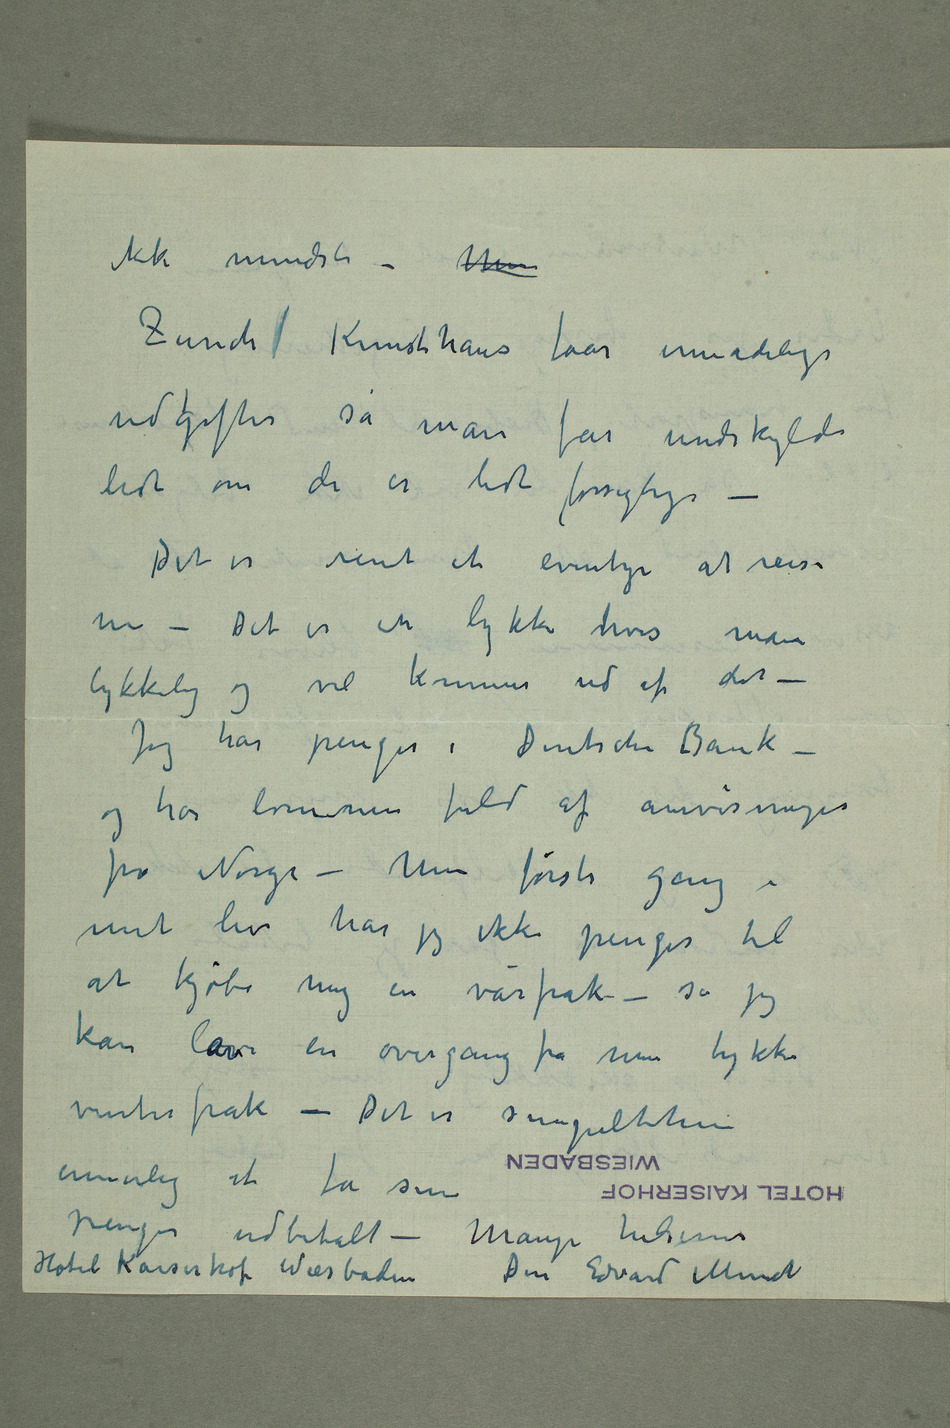 ikke mindste – Men
Zürich Kunsthaus faar umådelige
udgifter så man får undskylde
lidt om de er lidt forsigtige –
Det er rent et eventyr at reise
nu – Det er en lykke hvis man
lykkelig og vel kommer ud af det –
Jeg har penger i Deutsche Bank –
og har lommen fuld af anvisninger
fra Norge – Men første gang i
mit liv har jeg ikke penger til
at kjøbe mig en vårfrak – så jeg
kan lave en overgang fra min tykke
vinterfrak – Det er simpelthen
umulig at få sine
penger udbetalt – Mange hilsener
Hotel Kaiserhof Wiesbaden Din Edvard Munch
HOTEL KAISERHOF
WIESBADEN